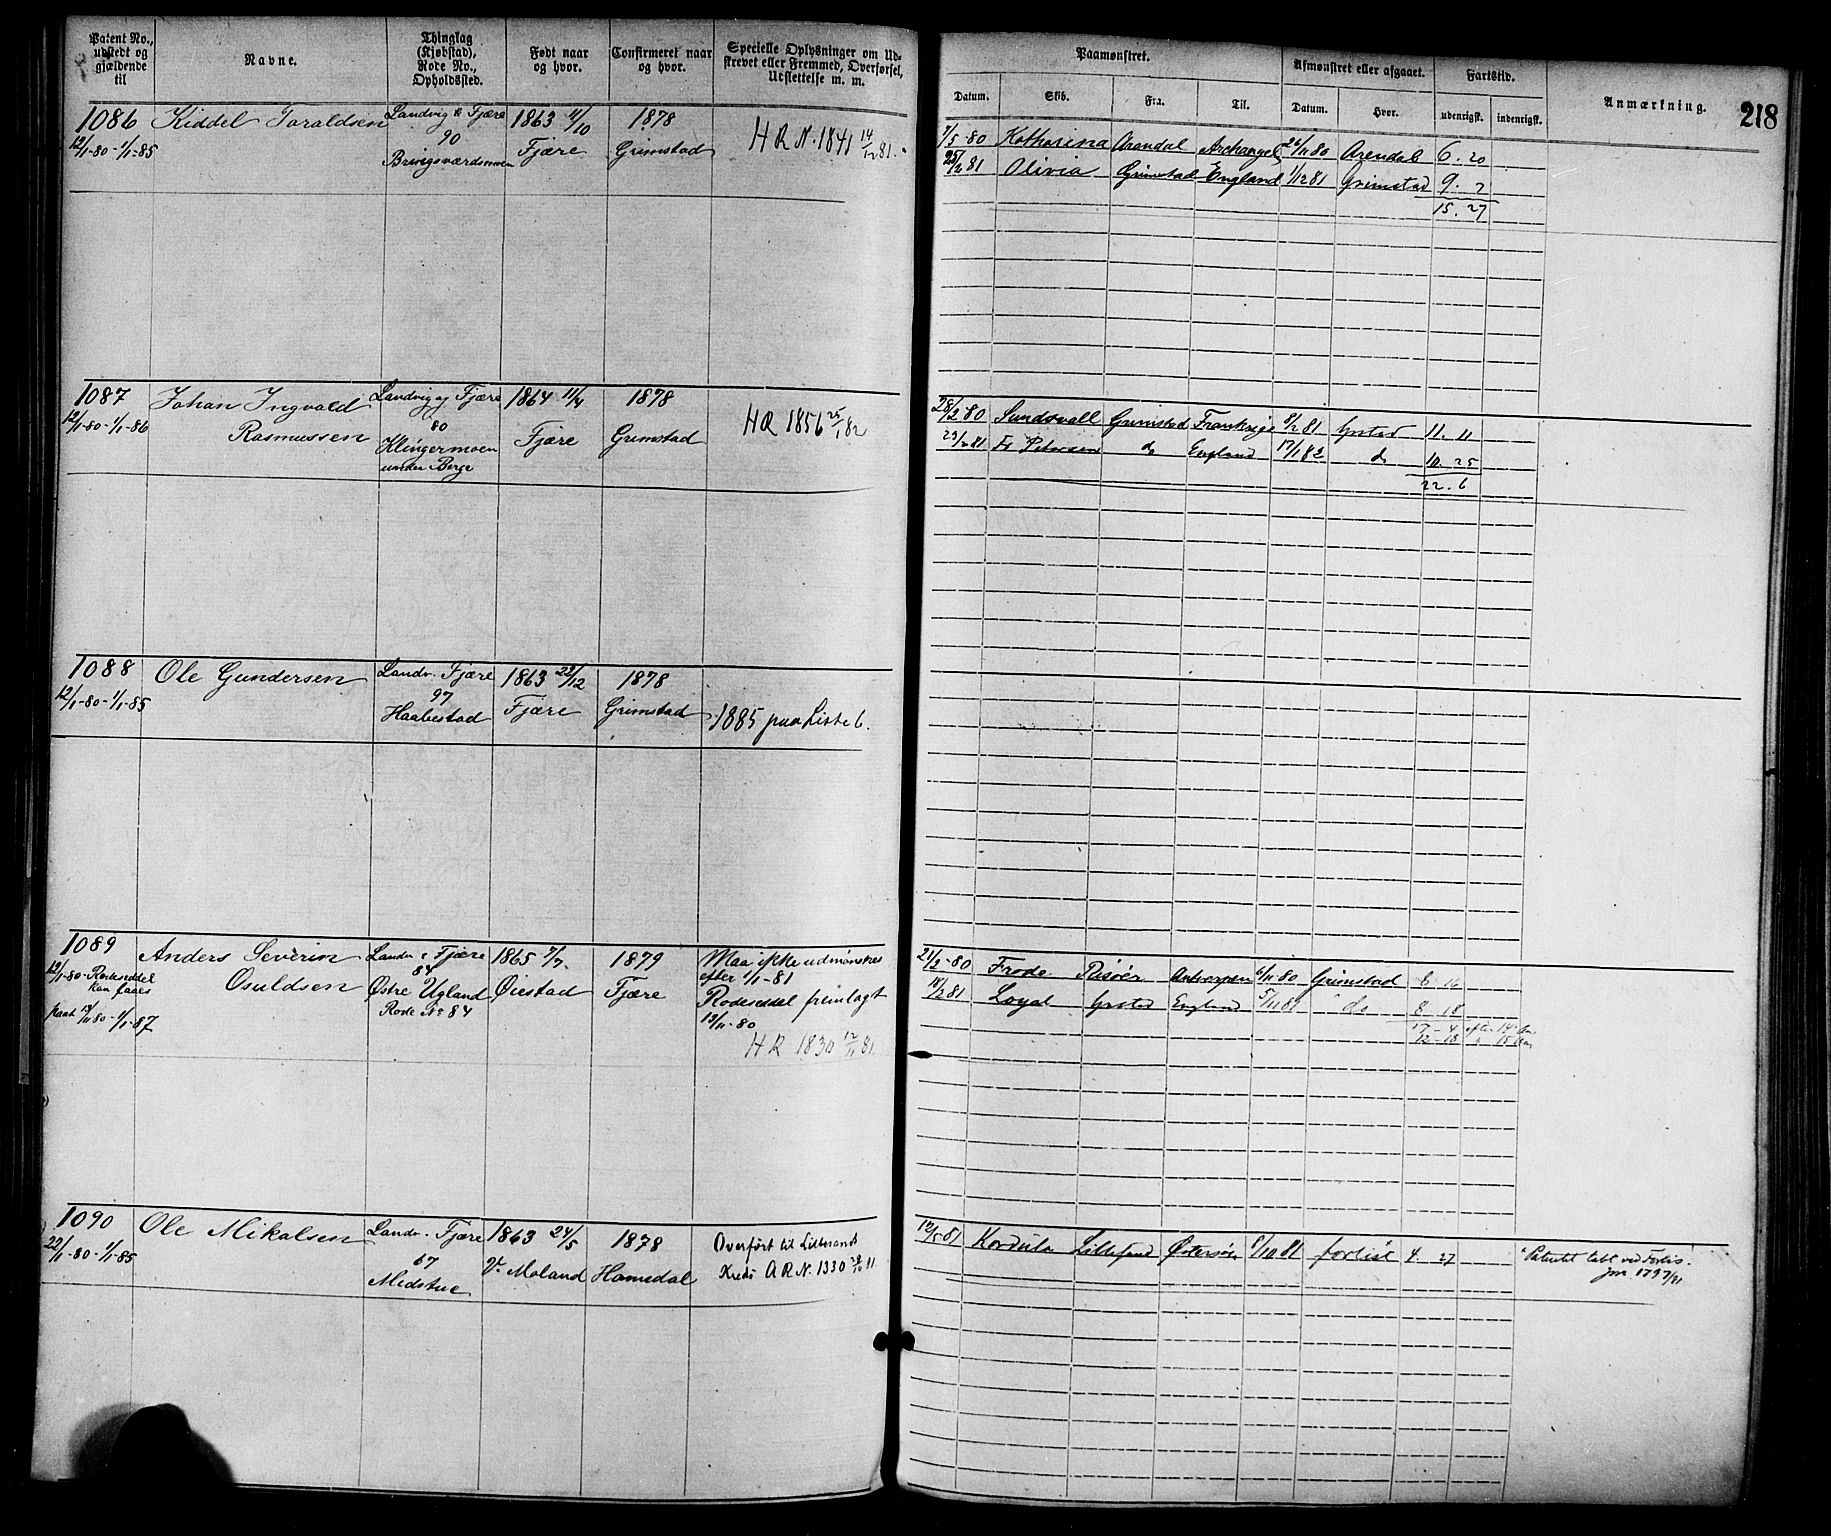 Patent No.,
udstedt og
gjældende
til
Navne.
Thinglag
(Kjøbstad),
Rode No.,
Opholdssted.
Født naar
og hvor.
Confirmeret naar
og hvor.
Specielle Oplysninger om Ud-
skrevet eller Fremmed, Overførsel,
Udslettelse m. m.
Paamønstret.
Afmønstret eller afgaaet.
Fartstid.
Anmærkning.
218
Datum.
Skib.
Fra.
Til.
Datum.
Hvor.
udenrigsk.
indenrigsk.
1086
12/1-80-1/1-85
Kiddel Toraldsen
Landvig & Fjære
90
Brivigsværdsmoen
1863 11/10
Fjære
1878
Grimstad
H R N. 1841 14/12 81.
7/5-80 Katharina Arendal Archangel 26/11 80 Arendal 6. 20
Olivia Grimstad England 1/12 81 Grimstad 9. 7
15. 27
1087
12/1-80-1/1-86
Johan Ingvald
Rasmussen
Landvig og Fjære
80
Klingermoen
under Berge
1864 11/4
Fjære
1878
Grimstad
H R 1856 25/1 82
28/2-80 Sundsvall Grimstad Frankrige 8/2 81 Grstad 11. 11
Petersen do England 17/1 82 do 10. 25
22. 6
1088
12/1-80-1/1-85
Ole Gundersen
Landv. Fjære
97
Haabestad
1863 22/12
Fjære
1878
Grimstad
1885 paa Liste 6.
1089
12/1-80- Rodeseddel
kan faaes
Paat 13/11 80-1/1-87
Anders Severin
Osuldsen
Landv & Fjære
84
Østre Ugland
Rode No 84
1865 7/7.
Øiestad
1879
Fjære
Maa ikke udmønstres
efter 1/1-81
Rodeseddel freinlagt
13/11-80
H R 1830 12/11 81.
21/2-80 Frode Risöer Antwerpen 6/11-80 Grimstad 8 16
Loyal Grstad England 5/11 81 do 8 18
17-4 efter 14
12-18 " 15
1090
22/1-80-1/1-85
Ole Mikalsen
Landv. Fjære
67
Midstue
1863 24/5
V. Moland
1878
Homedal
Overført til Lillesands
Kreds A R N. 1330
12/5 81 Kordula Lillesand Østersøen 8/10 81 forlist 4. 27
Patentet tabt ved Forlis.
jnr. 1797/81